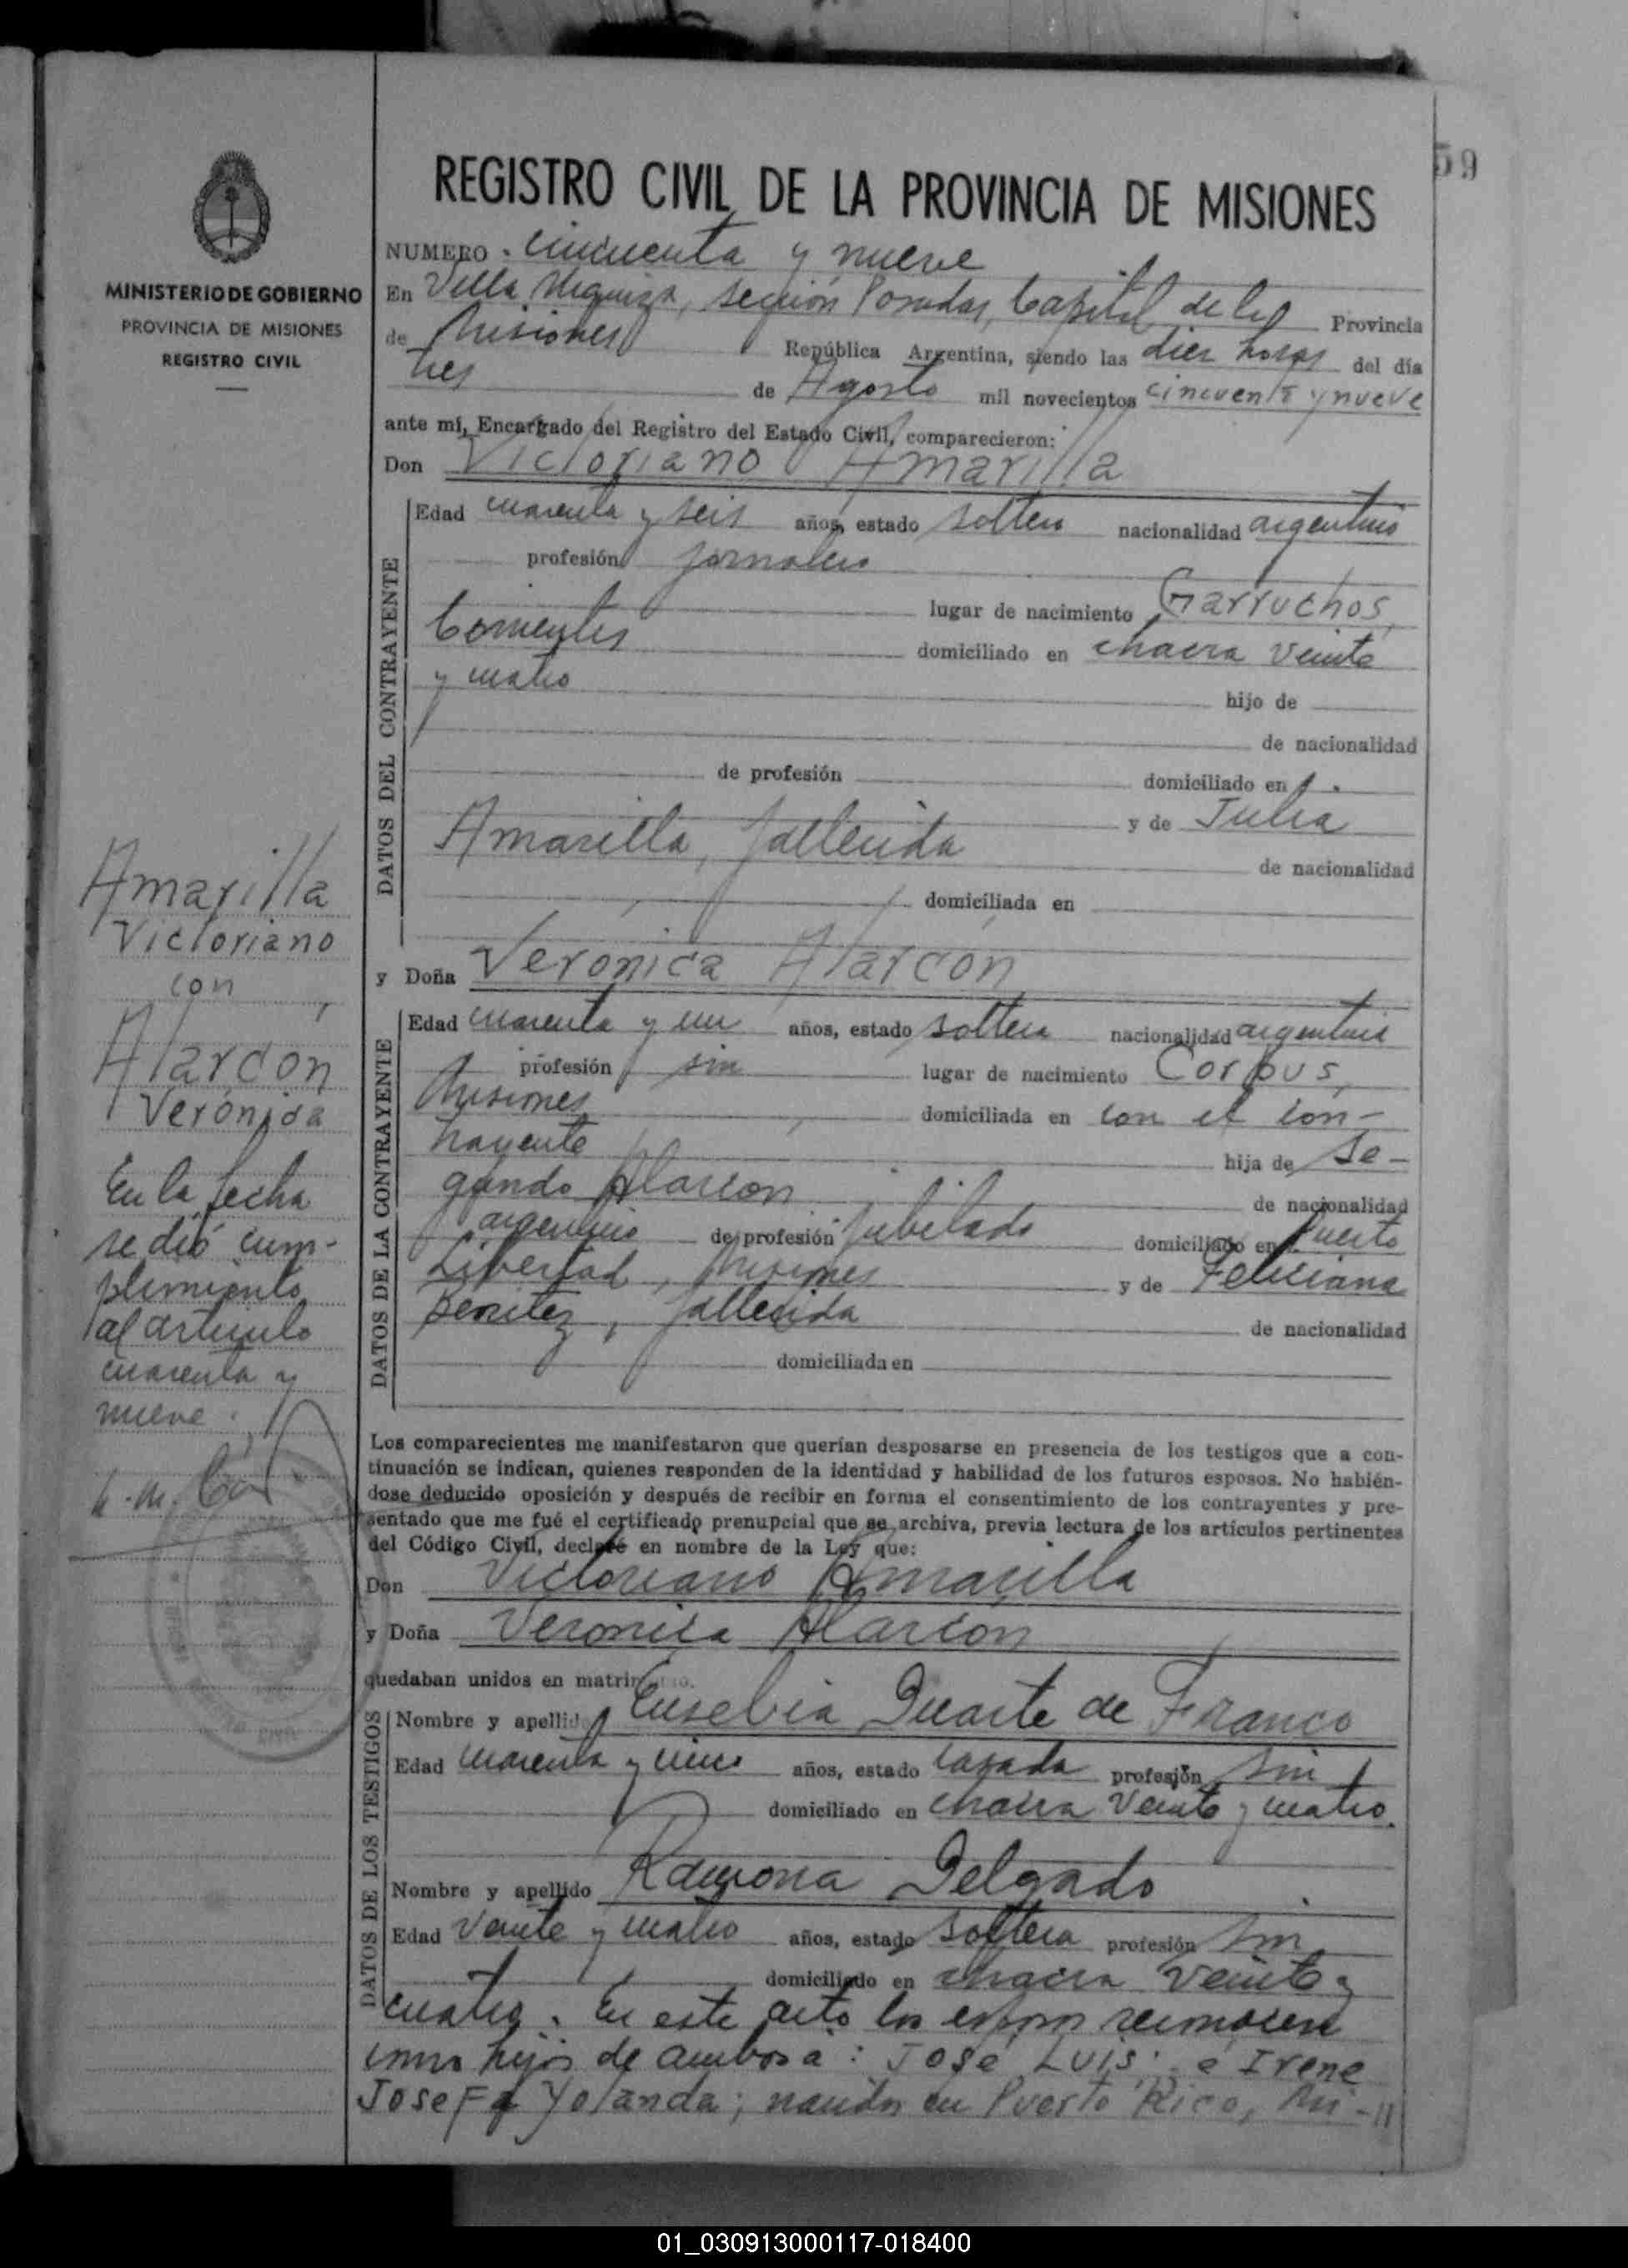 59
REGISTRO CIVIL DE LA PROVINCIA DE MISIONES
MINISTERIO DE GOBIERNO
PROVINCIA DE MISIONES
REGISTRO CIVIL
NUMERO cincuenta y nueve
En Villa Urquiza, sección Posadas, Capital de la Provincia
de Misiones República Argentina, siendo las diez horas del día
tres de Agosto mil novecientos cincuenta y nueve
ante mí, Encargado del Registro del Estado Civil, comparecieron:
Don Victoriano Amarilla
DATOS DEL CONTRAYENTE
Edad cuarenta y seis años, estado soltero nacionalidad argentino
profesión jornalero
lugar de nacimiento Garruchos,
Corrientes domiciliado en chacra veinte
y cuatro hijo de
de nacionalidad
de profesión domiciliado en
y de Julia
Amarilla, fallecida de nacionalidad
domiciliada en
y Doña Verónica Alarcón
DATOS DE LA CONTRAYENTE
Edad cuarenta y un años, estado soltera nacionalidad argentina
profesión sin lugar de nacimiento Corpus,
Misiones domiciliada en con el con-
trayente hija de Se-
gundo Alarcon de nacionalidad
argentino de profesión jubilado domiciliado en Puerto
Libertad, Misiones y de Feliciana
Benitez, fallecida de nacionalidad
domiciliada en
Los comparecientes me manifestaron que querían desposarse en presencia de los testigos que a con-
tinuación se indican, quienes responden de la identidad y habilidad de los futuros esposos. No habién-
dose deducido oposición y después de recibir en forma el consentimiento de los contrayentes y pre-
sentado que me fué el certificado prenupcial que se archiva, previa lectura de los artículos pertinentes
del Código Civil, declaré en nombre de la Ley que:
Don Victoriano Amarilla
y Doña Veronica Alarcón
quedaban unidos en matrimonio.
DATOS DE LOS TESTIGOS
Nombre y apellido Eusebia Duarte de Franco
Edad cuarenta y cinco años, estado casada profesión sin
domiciliado en chacra veinte y cuatro.
Nombre y apellido Ramona Delgado
Edad veinte y cuatro años, estado soltera profesión sin
domiciliado en chacra veinte y
cuatro. En este acto los esposos reconocen
como hijos de ambos a: José Luis; e Irene
Josefa Yolanda; nacidos en Puerto Rico, Mi-//
Amarilla
Victoriano
con
Alarcón
Verónica
En la fecha
se dió cum-
plimiento
al artículo
cuarenta y
nueve.
01_030913000117-018400